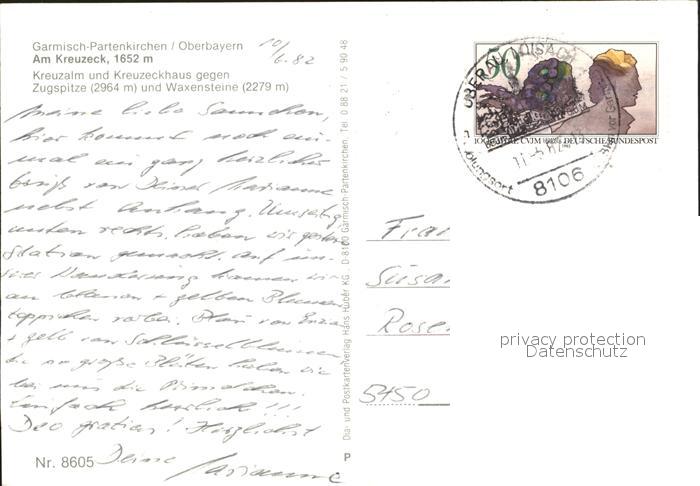 Garmisch-Partenkirchen / Oberbayern
Am Kreuzeck, 1652 m
Kreuzalm und Kreuzeckhaus gegen
Zugspitze (2964 m) und Waxensteine (2279 m)
10/6.82
Meine liebe
hier kommt noch ein-
mal ein ganz herzlicher
Gruß von Deiner Marianne
nebst Anhang. Umseitig
unten rechts haben wir gestern
Station gemacht. Auf un-
serer Wanderung kamen wir
an blauen + gelben Blumen
teppichen vorbei. Blau von Enzian
+ gelb von Schlüsselblumen
die so große Blüten haben wie
bei uns die Primelchen.
Einfach herrlich!!!
Deo gratias! Herzlichst
Deine Marianne
Nr. 8605
Dia- und Postkartenverlag Hans Huber KG · D-8100 Garmisch-Partenkirchen, Tel. 0 88 21 / 5 90 48
P
50
100 JAHRE CVJM DEUTSCHE BUNDESPOST
8106
Frau
Susan
Rosen
5450
privacy protection
Datenschutz